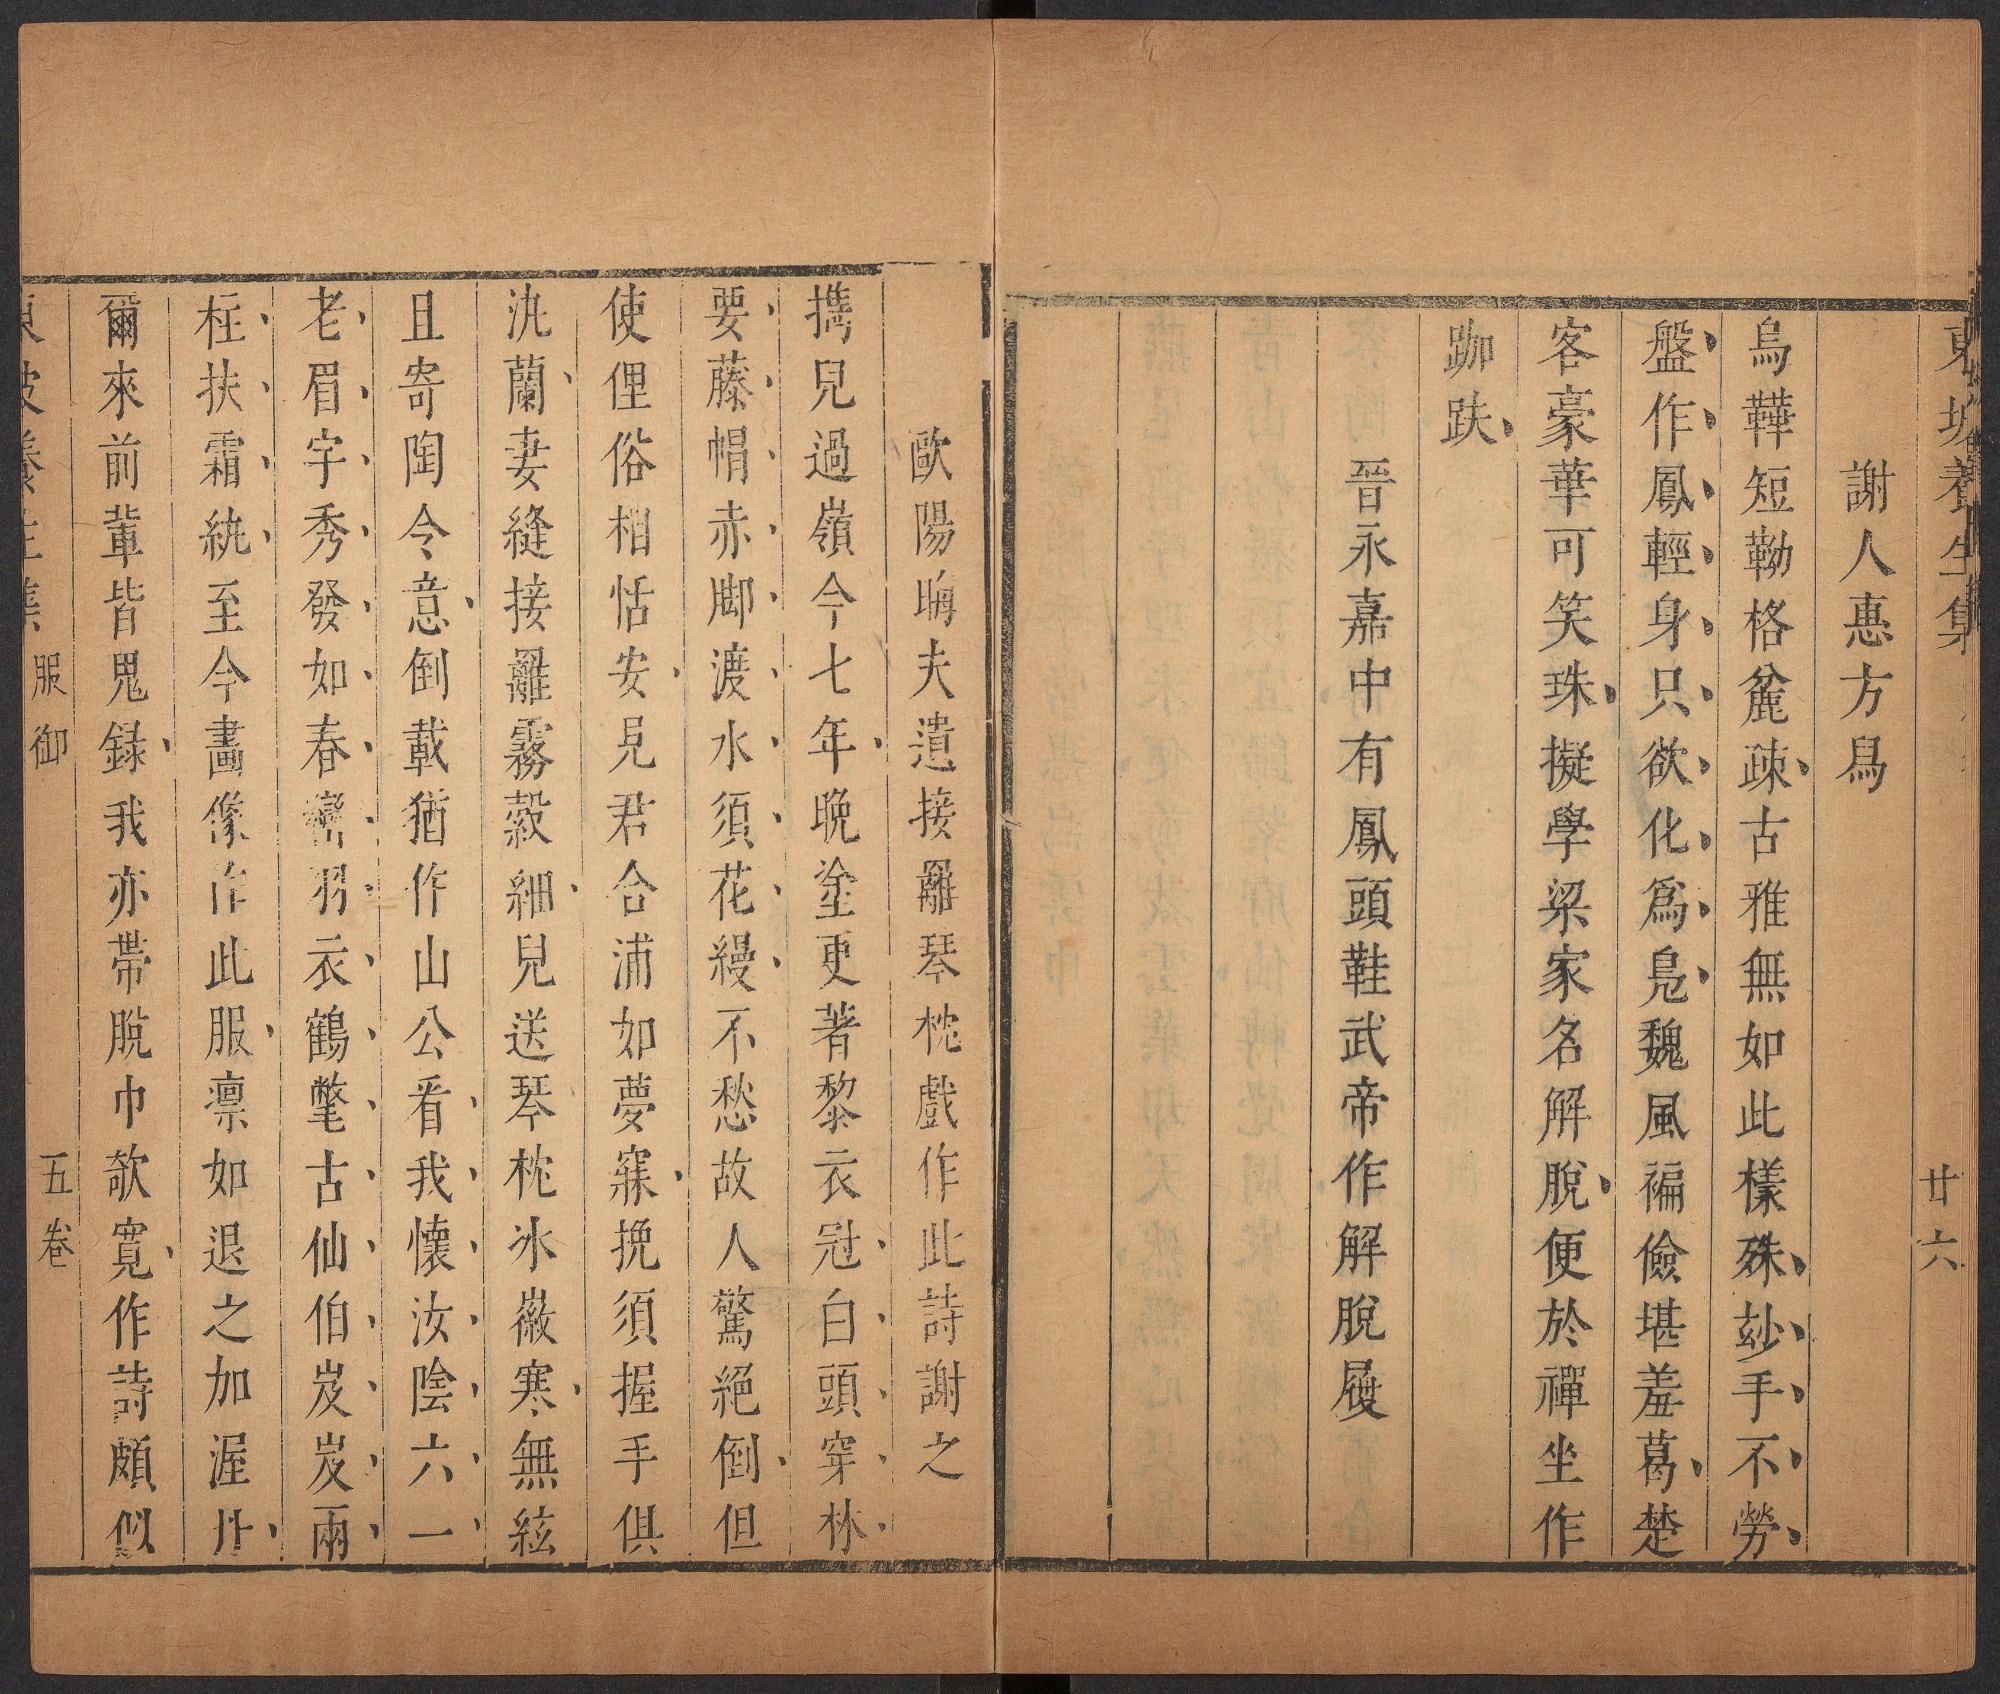 東坡養生集 廿六
謝人惠方舄
烏鞾短勒格麄疎古雅無如此樣殊妙手不勞
盤作鳳輕身只欲化爲鳧魏風褊儉堪羞葛楚
客豪華可笑珠擬學梁家名解脫便於禪坐作
跏趺
晉永嘉中有鳳頭鞋武帝作解脫履
歐陽晦夫遺接䍦琴枕戲作此詩謝之
攜兒過嶺今七年晚塗更著黎衣冠白頭穿林
要藤帽赤脚渡水須花縵不愁故人驚絕倒但
使俚俗相恬安見君合浦如夢寐挽須握手俱
汍蘭妻縫接䍦霧縠細兒送琴枕冰徽寒無絃
且寄陶令意倒載猶作山公看我懷汝陰六一
老眉宇秀發如春巒羽衣鶴氅古仙伯岌岌兩
柱扶霜紈至今畫像作此服凛如退之加渥丹
爾來前輩皆鬼錄我亦帶脫巾欹寬作詩頗似
東坡養生集 服御 五卷